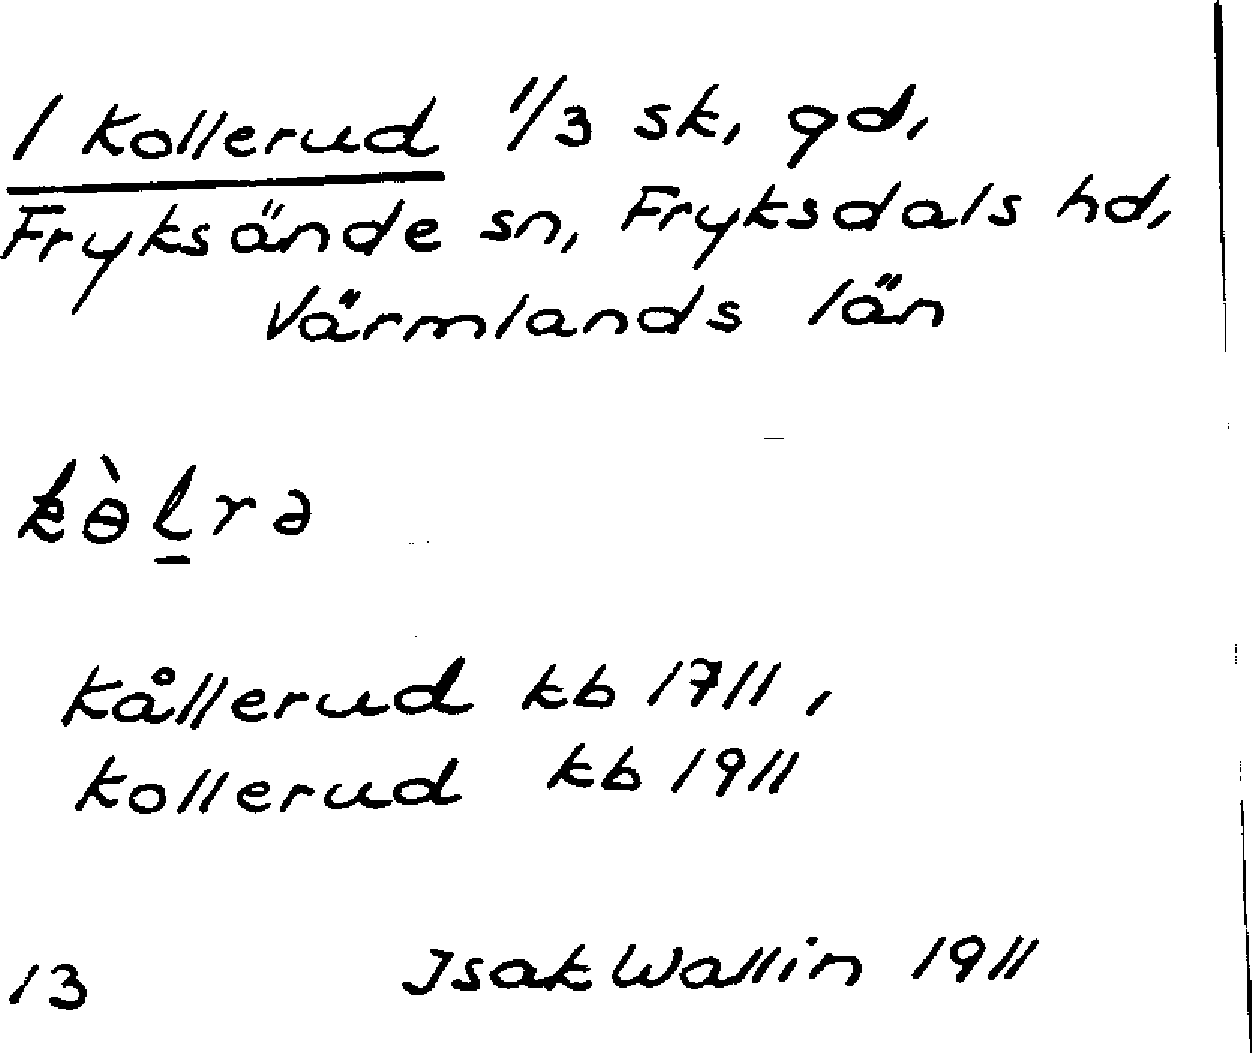 1 Kollerud 1/3 sk, gd,
Fryksände sn, Fryksdals hd,
Värmlands län
kɵ̀l̠rə
Kållerud kb 1711,
Kollerud kb 1911
13 Isak Wallin 1911